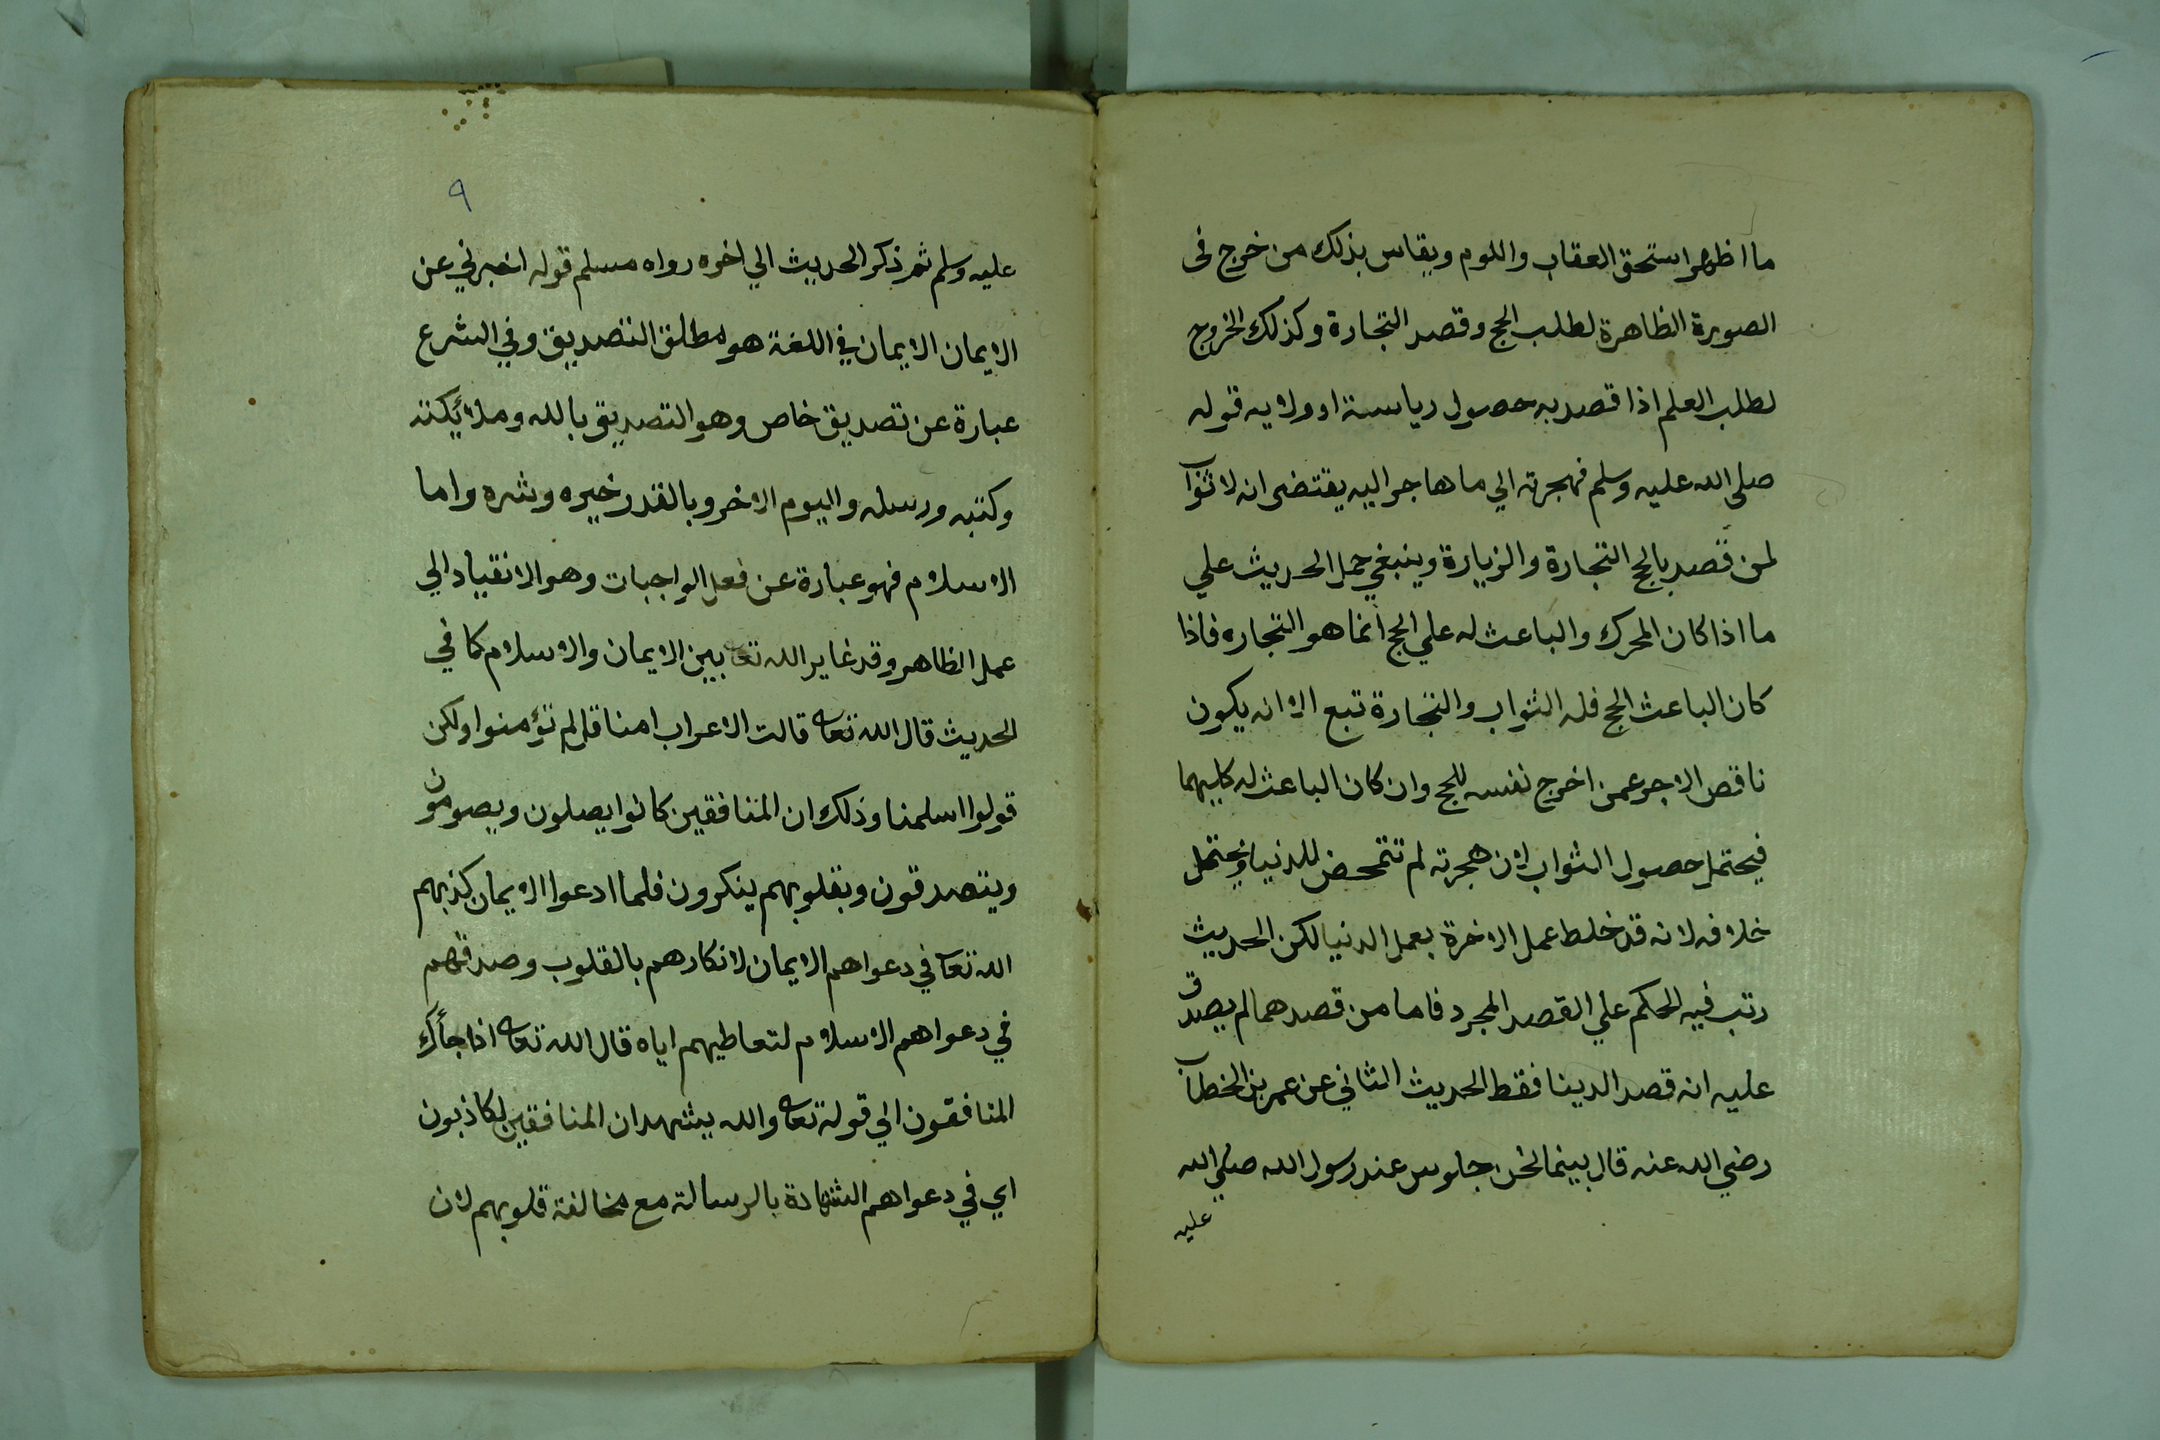 ما اظهر استحق العقاب واللوم ويقاس بذلك من خرج فى
الصورة الظاهرة لطلب الحج وقصد التجارة وكذلك الخروج
لطلب العلم اذا قصد به حصول رياسة او ولايه قوله
صلي الله عليه وسلم فهجرته الي ما هاجر اليه يقتضى انه لا ثواب
لمن قصد بالحج التجارة والزيارة وينبغي حمل الحديث علي
ما اذا كان المحرك والباعث له علي الحج انما هو التجاره فاذا
كان الباعث الحج فله الثواب والتجارة تبع الا انه يكون
ناقص الاجر عمن اخرج نفسه للحج وان كان الباعث له كليهما
فيحتمل حصول الثواب لان هجرته لم تتمحض للدنيا ويحتمل
خلافه لانه قد خلط عمل الاخرة بعمل الدنيا لكن الحديث
رتب فيه الحكم علي القصد المجرد فاما من قصدهما لم يصدق
عليه انه قصد الدينا فقط الحديث الثاني عن عمر بن الخطاب
رضي الله عنه قال بينما نحن جلوس عند رسول الله صلي الله
عليه
٩
عليه وسلم ثم ذكر الحديث الي اخره رواه مسلم قوله اخبرني عن
الايمان الايمان في اللغة هو مطلق التصديق وفي الشرع
عبارة عن تصديق خاص وهو التصديق بالله وملائكته
وكتبه ورسله واليوم الاخر وبالقدر خيره وشره واما
الاسلام فهو عبارة عن فعل الواجبات وهو الانقياد الي
عمل الظاهر وقد غاير الله تعا بين الايمان والاسلام كما في
الحديث قال الله تعا قالت الاعراب امنا قل لم تؤمنوا ولكن
قولوا اسلمنا وذلك ان المنافقين كانوا يصلون ويصومون
ويتصدقون وبقلوبهم ينكرون فلما ادعوا الايمان كذبهم
الله تعا في دعواهم الايمان لانكارهم بالقلوب وصدقهم
في دعواهم الاسلام لتعاطيهم اياه قال الله تعا اذا جأك
المنافقون الي قولة تعا والله يشهد ان المنافقين لكاذبون
اي في دعواهم الشهادة بالرسالة مع مخالفة قلوبهم لان